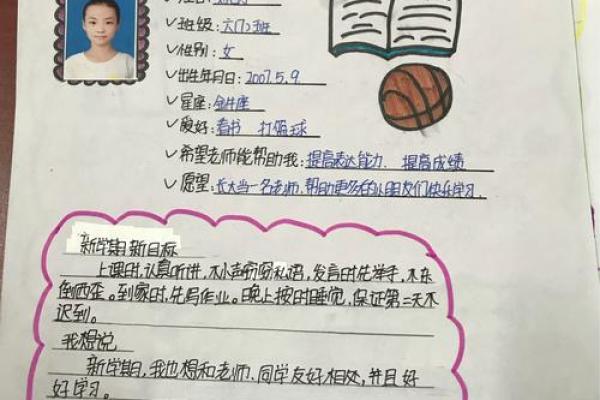 班级:六(7)班
性别:女
出生年月日:2007.5.9.
星座:金牛座
爱好:看书 打篮球
希望老师能帮助我:提高表达能力、提高成绩
愿望:长大当一名老师,帮助更多的小朋友们快乐学习.
新学期新目标
上课时,认真听讲,不小声窃窃私语,发言时先举手,不东
倒西歪。到家时,先写作业。晚上按时睡觉,保证第二天不
迟到。
我想说
新学期,我也想和老师、同学友好相处,并且好
好学习。